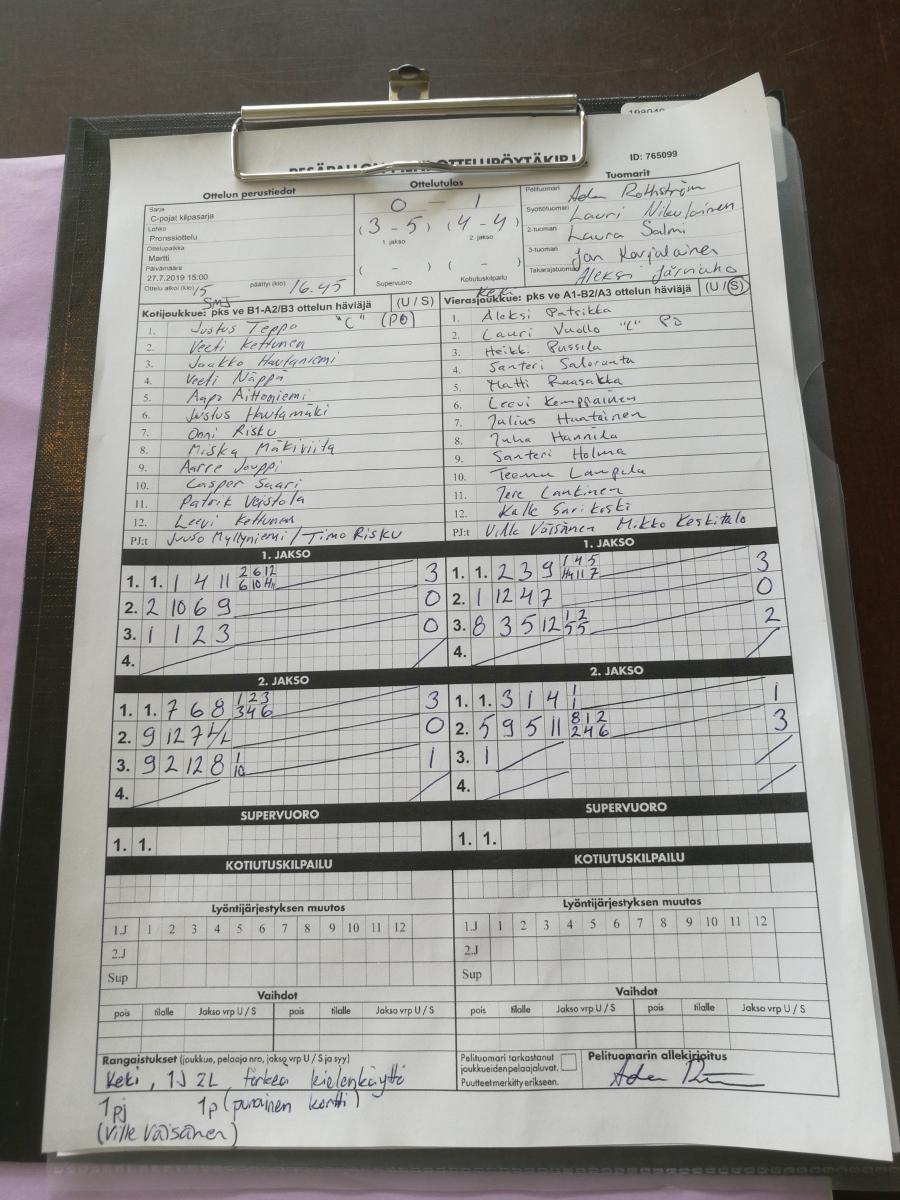 ID: 765099
Ottelun perustiedot
Ottelutulos
Tuomarit
Sarja
C-pojat kilpasarja
Lohko
Pronssiottelu
Ottelupaikka
Martti
Päivämäärä
27.7.2019 15:00
Ottelu alkoi (klo) 15 päättyi (klo) 16.45
0 - 1
(3 - 5) (4 - 4)
1. jakso 2. jakso
( - ) ( - )
Supervuoro Kotiutuskilpailu
Pelituomari Aden Rothström
Syöttötuomari Lauri Nikulainen
2-tuoman Laura Salmi
3-tuoman Jan Karjalainen
Takarajatuomari Aleksi Järviaho
SMJ
Kotijoukkue: pks ve B1-A2/B3 ottelun häviäjä (U / S)
1. Justus Teppo "C" (PO)
2. Veeti Kettunen
3. Jaakko Hautaniemi
4. Veeti Näppä
5. Aapo Aittoniemi
6. Justus Hautamäki
7. Onni Risku
8. Miska Mäkiviita
9. Aarre Jouppi
10. Casper Saari
11. Patrik Veistola
12. Leevi Kettunen
PJ:t Juuso Myllyniemi / Timo Risku
Keki
Vierasjoukkue: pks ve A1-B2/A3 ottelun häviäjä (U / S)
1. Aleksi Patrikka
2. Lauri Vuollo "C" PO
3. Heikki Pussila
4. Santeri Saloranta
5. Matti Raasakka
6. Leevi Kemppainen
7. Julius Huntainen
8. Juha Hannila
9. Santeri Holma
10. Teemu Lampela
11. Jere Lantinen
12. Kalle Sarikoski
PJ:t Ville Väisänen Mikko Keskitalo
1. JAKSO
1. 1. 1 4 11 2 6 12 3
6 10 H11
2. 2 10 6 9 0
3. 1 1 2 3 0
4.
1. JAKSO
1. 1. 2 3 9 1 4 5 3
H4 11 7
2. 1 12 4 7 0
3. 8 3 5 12 1 2 2
5 5
4.
2. JAKSO
1. 1. 7 6 8 1 2 3 3
3 4 6
2. 9 12 7 1/2 0
3. 9 2 12 8 1 1
10
4.
2. JAKSO
1. 1. 3 1 4 1 1
1
2. 5 9 5 11 8 1 2 3
2 4 6
3. 1
4.
SUPERVUORO
1. 1.
SUPERVUORO
1. 1.
KOTIUTUSKILPAILU
KOTIUTUSKILPAILU
Lyöntijärjestyksen muutos
1.J 1 2 3 4 5 6 7 8 9 10 11 12
2.J
Sup
Lyöntijärjestyksen muutos
1.J 1 2 3 4 5 6 7 8 9 10 11 12
2.J
Sup
Vaihdot
pois tilalle Jakso vrp U / S pois tilalle Jakso vrp U / S
Vaihdot
pois tilalle Jakso vrp U / S pois tilalle Jakso vrp U / S
Rangaistukset (joukkue, pelaaja nro, jakso vrp U / S ja syy)
Keki, 1J 2L, törkeä kielenkäyttö
1pj 1p (punainen kortti)
(Ville Väisänen)
Pelituomari tarkastanut
joukkueiden pelaajaluvat.
Puutteet merkitty erikseen.
Pelituomarin allekirjoitus